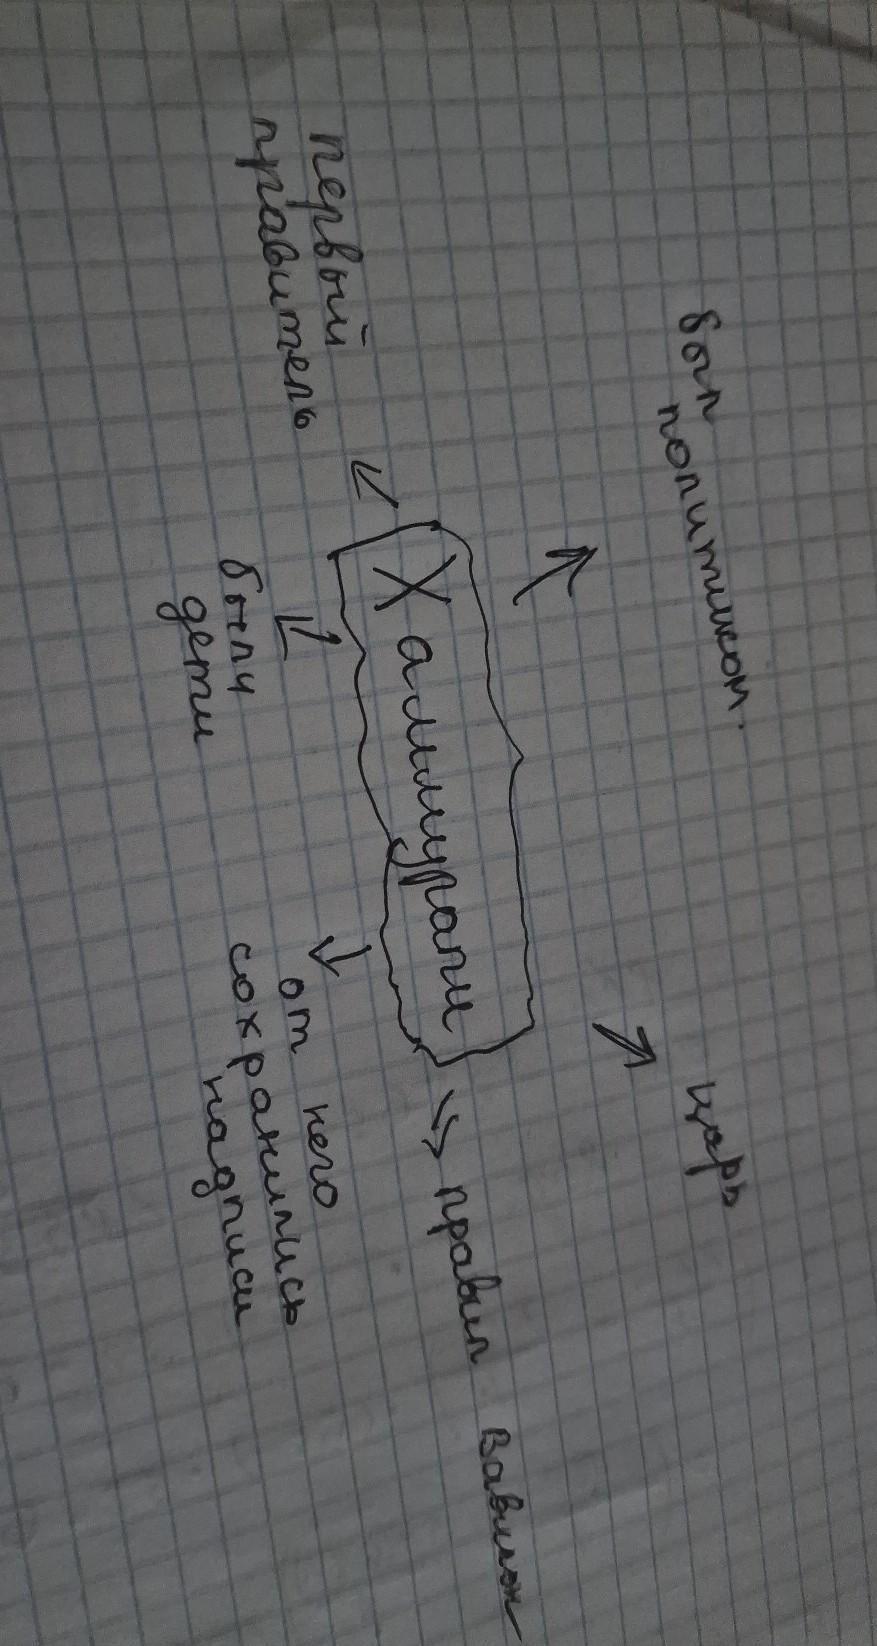 был
политиком.
царь
Хаммурапи
правил Вавилон
первый
правитель
были
дети
от него
сохранились
надписи